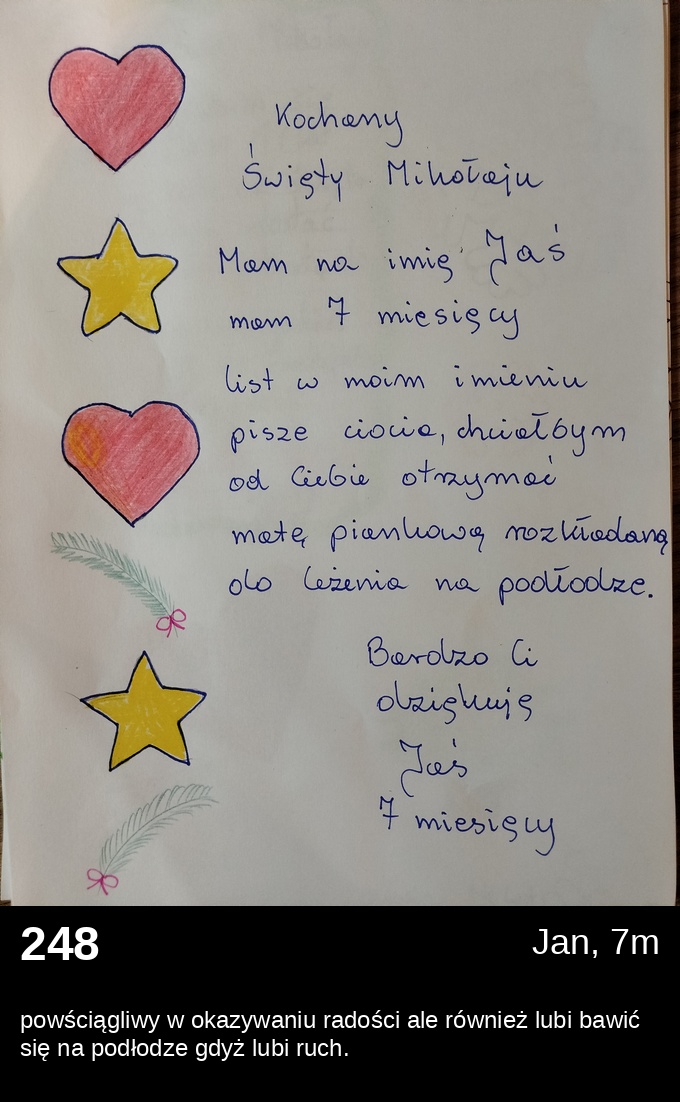 Kochany
Święty Mikołaju
Mam na imię Jaś
mam 7 miesięcy
list w moim imieniu
pisze ciocia, chciałbym
od Ciebie otrzymać
matę piankową rozkładaną
do leżenia na podłodze.
Bardzo Ci
dziękuję
Jaś
7 miesięcy
248
Jan, 7m
powściągliwy w okazywaniu radości ale również lubi bawić
się na podłodze gdyż lubi ruch.